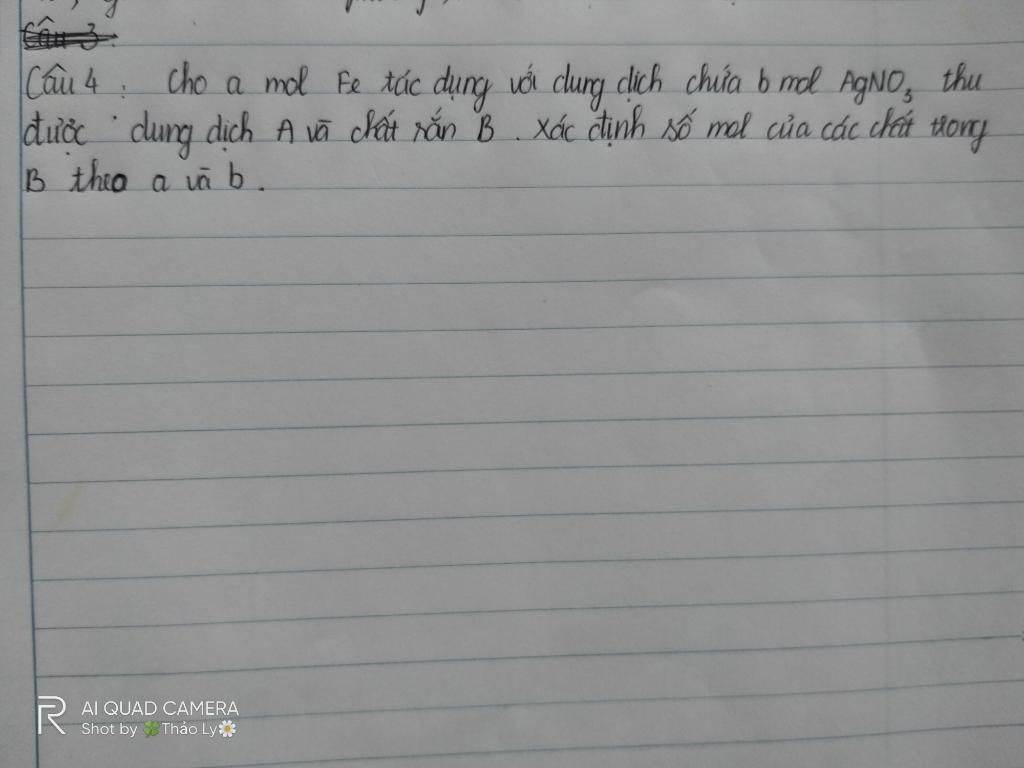 Câu 3:
Câu 4: Cho a mol Fe tác dụng với dung dịch chứa b mol AgNO₃ thu
được dung dịch A và chất rắn B. Xác định số mol của các chất trong
B theo a và b.
AI QUAD CAMERA
Shot by 🍀Thảo Ly🌼